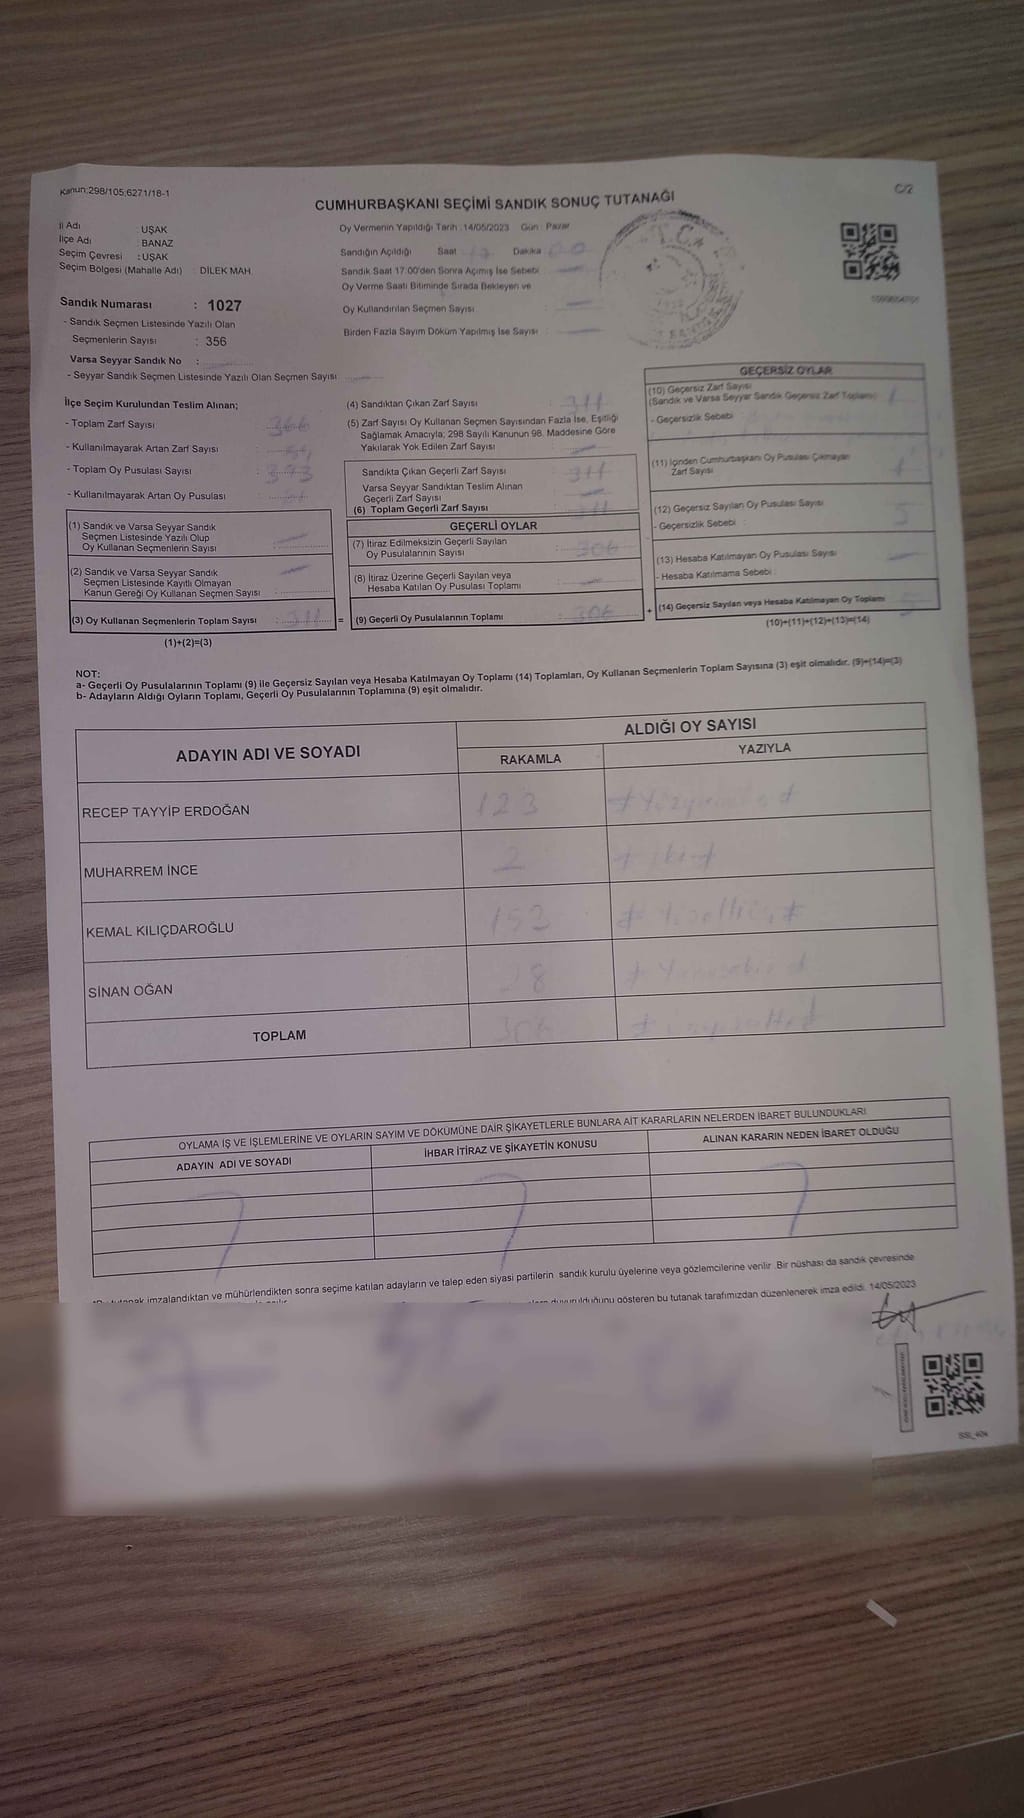 Kanun:298/105;6271/18-1
C/2
CUMHURBAŞKANI SEÇİMİ SANDIK SONUÇ TUTANAĞI
İl Adı : UŞAK
İlçe Adı : BANAZ
Seçim Çevresi : UŞAK
Seçim Bölgesi (Mahalle Adı) DİLEK MAH.
Oy Vermenin Yapıldığı Tarih :14/05/2023 Gün : Pazar
Sandığın Açıldığı Saat : 17 Dakika : 00
Sandık Saat 17:00'den Sonra Açımış İse Sebebi
Oy Verme Saati Bitiminde Sırada Bekleyen ve
Oy Kullandırılan Seçmen Sayısı :
Birden Fazla Sayım Döküm Yapılmış İse Sayısı :
T.C.
Sandık Numarası : 1027
- Sandık Seçmen Listesinde Yazılı Olan
Seçmenlerin Sayısı : 356
Varsa Seyyar Sandık No :
- Seyyar Sandık Seçmen Listesinde Yazılı Olan Seçmen Sayısı
İlçe Seçim Kurulundan Teslim Alınan;
- Toplam Zarf Sayısı :
- Kullanılmayarak Artan Zarf Sayısı :
- Toplam Oy Pusulası Sayısı :
- Kullanılmayarak Artan Oy Pusulası :
(1) Sandık ve Varsa Seyyar Sandık
Seçmen Listesinde Yazılı Olup
Oy Kullanan Seçmenlerin Sayısı :
(2) Sandık ve Varsa Seyyar Sandık
Seçmen Listesinde Kayıtlı Olmayan
Kanun Gereği Oy Kullanan Seçmen Sayısı :
(3) Oy Kullanan Seçmenlerin Toplam Sayısı : 311
(1)+(2)=(3)
(4) Sandıktan Çıkan Zarf Sayısı : 311
(5) Zarf Sayısı Oy Kullanan Seçmen Sayısından Fazla İse, Eşitliği
Sağlamak Amacıyla; 298 Sayılı Kanunun 98. Maddesine Göre
Yakılarak Yok Edilen Zarf Sayısı :
Sandıkta Çıkan Geçerli Zarf Sayısı : 311
Varsa Seyyar Sandıktan Teslim Alınan
Geçerli Zarf Sayısı :
(6) Toplam Geçerli Zarf Sayısı : 311
GEÇERLİ OYLAR
(7) İtiraz Edilmeksizin Geçerli Sayılan
Oy Pusulalarının Sayısı : 306
(8) İtiraz Üzerine Geçerli Sayılan veya
Hesaba Katılan Oy Pusulası Toplamı :
= (9) Geçerli Oy Pusulalarının Toplamı : 306
GEÇERSİZ OYLAR
(10) Geçersiz Zarf Sayısı
(Sandık ve Varsa Seyyar Sandık Geçersiz Zarf Toplamı)
- Geçersizlik Sebebi :
(11) İçinden Cumhurbaşkanı Oy Pusulası Çıkmayan
Zarf Sayısı
(12) Geçersiz Sayılan Oy Pusulası Sayısı : 5
- Geçersizlik Sebebi :
(13) Hesaba Katılmayan Oy Pusulası Sayısı
- Hesaba Katılmama Sebebi :
+ (14) Geçersiz Sayılan veya Hesaba Katılmayan Oy Toplamı 5
(10)+(11)+(12)+(13)=(14)
NOT:
a- Geçerli Oy Pusulalarının Toplamı (9) ile Geçersiz Sayılan veya Hesaba Katılmayan Oy Toplamı (14) Toplamları, Oy Kullanan Seçmenlerin Toplam Sayısına (3) eşit olmalıdır. (9)+(14)=(3)
b- Adayların Aldığı Oyların Toplamı, Geçerli Oy Pusulalarının Toplamına (9) eşit olmalıdır.
ADAYIN ADI VE SOYADI
ALDIĞI OY SAYISI
RAKAMLA
YAZIYLA
RECEP TAYYİP ERDOĞAN 123
MUHARREM İNCE 2 # iki #
KEMAL KILIÇDAROĞLU 153 # Yüzelliüç #
SİNAN OĞAN 28
TOPLAM 306
OYLAMA İŞ VE İŞLEMLERİNE VE OYLARIN SAYIM VE DÖKÜMÜNE DAİR ŞİKAYETLERLE BUNLARA AİT KARARLARIN NELERDEN İBARET BULUNDUKLARI
ADAYIN ADI VE SOYADI
İHBAR İTİRAZ VE ŞİKAYETİN KONUSU
ALINAN KARARIN NEDEN İBARET OLDUĞU
tutanak imzalandıktan ve mühürlendikten sonra seçime katılan adayların ve talep eden siyasi partilerin sandık kurulu üyelerine veya gözlemcilerine verilir. Bir nüshası da sandık çevresinde
duyurulduğunu gösteren bu tutanak tarafımızdan düzenlenerek imza edildi. 14/05/2023